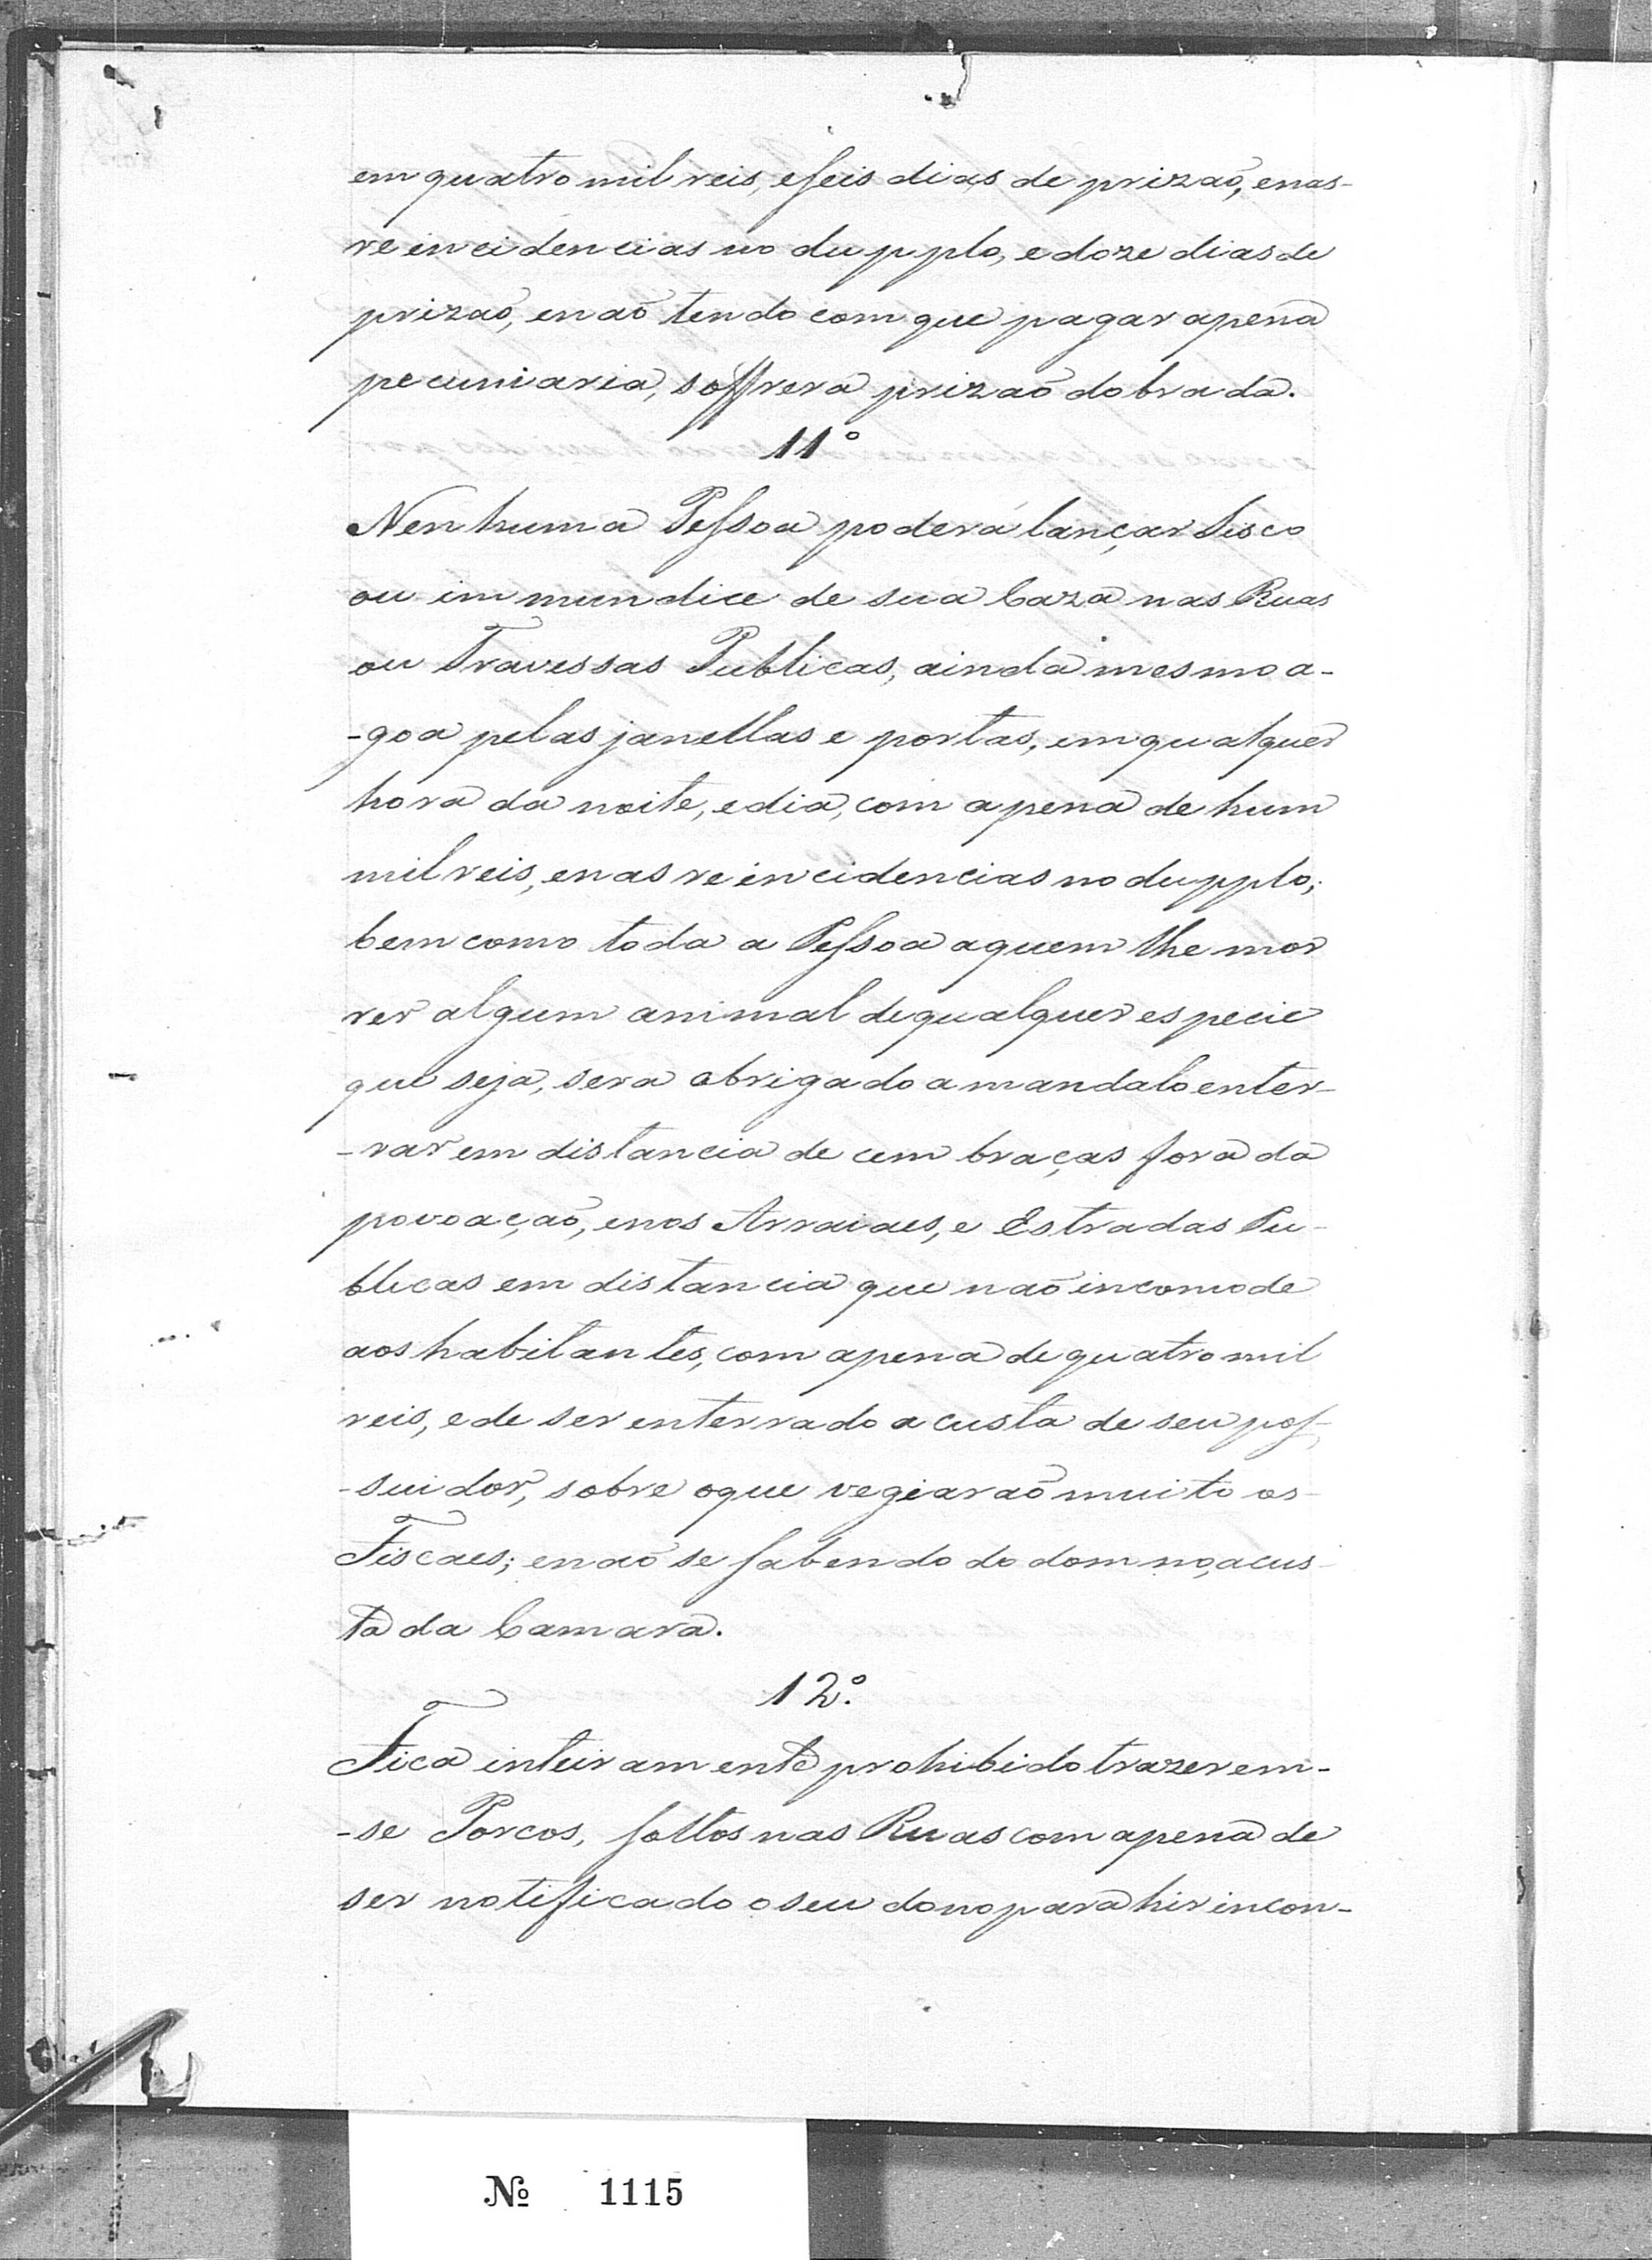 em quatro mil reis, e seis dias de prizaõ, e nas-
reincidencias no dupplo, e doze dias de
prizaõ, e naõ tendo com que pagar a pena
pecuniaria, soffrera prizaõ dobrada.
11º
Nenhuma Pessoa poderá lançar Sisco
ou immundice de sua Caza nas Ruas
ou Travessas Publicas, ainda mesmo a-
-goa pelas janellas e portas, em qualquer
hora da noite, e dia, com a pena de hum
mil reis, e nas reincidencias no dupplo;
bem como toda a Pessoa a quem lhe mor
rer algum animal de qualquer especie
que seja, sera obrigado a mandalo enter-
-rar em distancia de cem braças fora da
povoaçaõ, e nos Arraiaes, e Estradas Pu-
blicas em distancia que naõ incomode
aos habitantes, com a pena de quatro mil
reis, e de ser enterrado a custa de seu pos-
-suidor, sobre o que vegiaraõ muito os-
Fiscaes; e naõ se sabendo do domno, a cus-
ta da Camara.
12º.
Fica inteiramente prohibido trazerem-
-se Porcos, soltos nas Ruas com a pena de
ser notificado o seu dono para hir incon-
Nº 1115